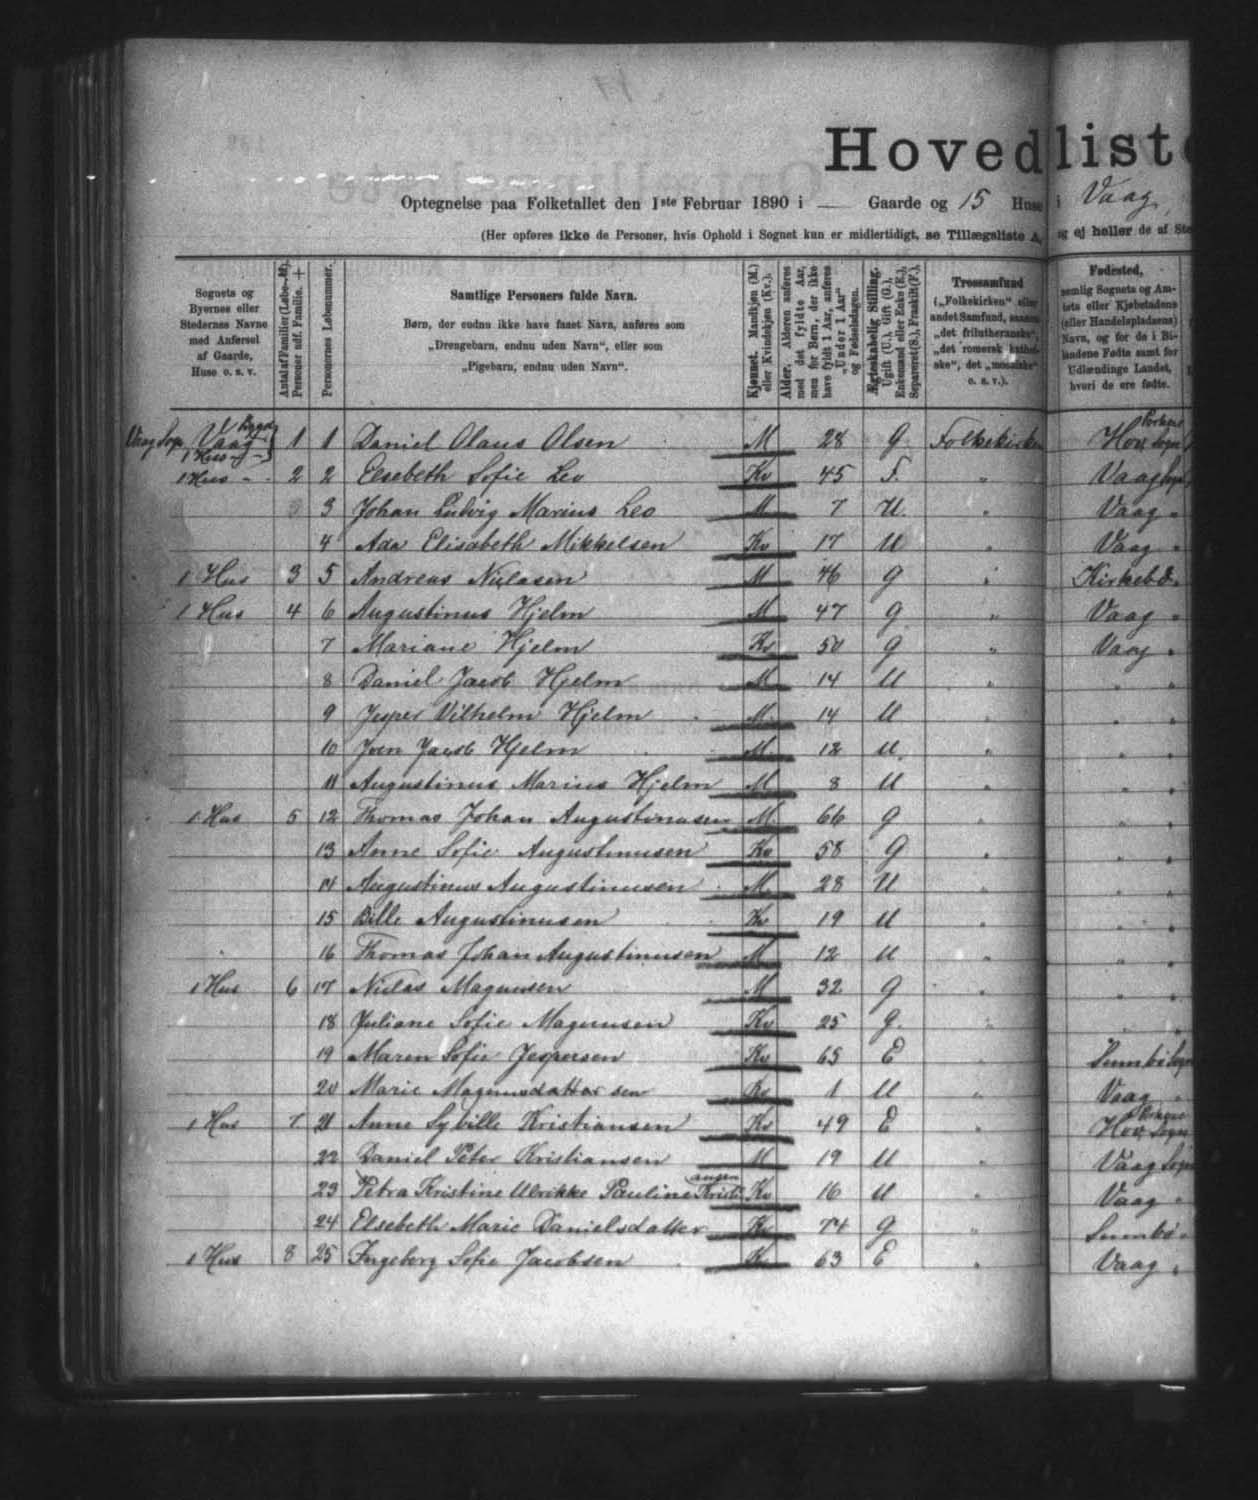 Hovedliste
Optegnelse paa Folketallet den 1ste Februar 1890 i — Gaarde og 15 Huse i Vaag,
(Her opføres ikke de Personer, hvis Ophold i Sognet kun er midlertidigt, se Tillægsliste A, og ej heller de af
Sognets og Byernes eller Stedernes Navne med Anførsel af Gaarde, Huse o. s. v.
Personer udf. Familie.
Personernes Løbenummer.
Samtlige Personers fulde Navn.
Børn, der endnu ikke have faaet Navn, anføres som
„Drengebarn, endnu uden Navn“, eller som
„Pigebarn, endnu uden Navn“.
Kjønnet. Mandkjøn (M.) eller Kvindekjøn (Kv.).
Alder. Alderen anføres med det fyldte Aar, men for Børn, der ikke have fyldt 1 Aar, anføres „Under 1 Aar“ og Fødselsdagen.
Ægteskabelig Stilling. Ugift (U.), Gift (G.), Enkemand eller Enke (E.), Separeret (S.), Fraskilt (F.).
Trossamfund („Folkekirken“ eller andet Samfund, saasom „det frilutheranske“, „det romersk katholske“, det „mosaiske“ o. s. v.).
Fødested,
Vaag Sogn Vaag Bygd 1 Hus 1 1 Daniel Olaus Olsen M 28 G Folkekirken Hov Sogn
1 Hus 2 2 Elsebeth Sofie Leo Kv 45 F. " Vaag Sogn
3 Johan Ludvig Marius Leo M 7 U. " Vaag "
4 Ada Elisabeth Mikkelsen Kv 17 U " Vaag "
1 Hus 3 5 Andreas M 46 G " Kirkebø "
1 Hus 4 6 Augustinus Hjelm M 47 G " Vaag "
7 Mariane Hjelm Kv 50 G " Vaag "
8 Daniel Jacob Hjelm M 14 U " " "
9 Jesper Vilhelm Hjelm M. 14 U " " "
10 Joen Jacob Hjelm M. 12 U. " " "
11 Augustinus Marius Hjelm M 8 U " "
1 Hus 5 12 Thomas Johan Augustinusen M. 66 G " " "
13 Anne Sofie Augustinusen Kv 58 G " " "
14 Augustinus Augustinusen M. 28 U " " "
15 Bille Augustinusen Kv 19 U " " "
16 Thomas Johan Augustinusen M 12 U " " "
1 Hus 6 17 Niclas Magnusen M 32 G " " "
18 Juliane Sofie Magnusen Kv 25 G. " " "
19 Maren Sofie Jespersen Kv 65 E " Sumbø Sogn
20 Marie Kv 1 U " Vaag "
1 Hus 7 21 Anne Sybille Kristiansen Kv 49 E " Hov Sogn
22 Daniel Peter Kristiansen M 19 U Vaag Sogn
23 Petra Kristine Ulrikke Pauline Kristiansen Kv 16 U " Vaag "
24 Elsebeth Marie Danielsdatter Kv 74 G " Sumbø "
1 Hus 8 25 Ingeborg Sofie Jacobsen Kv 63 E " Vaag "